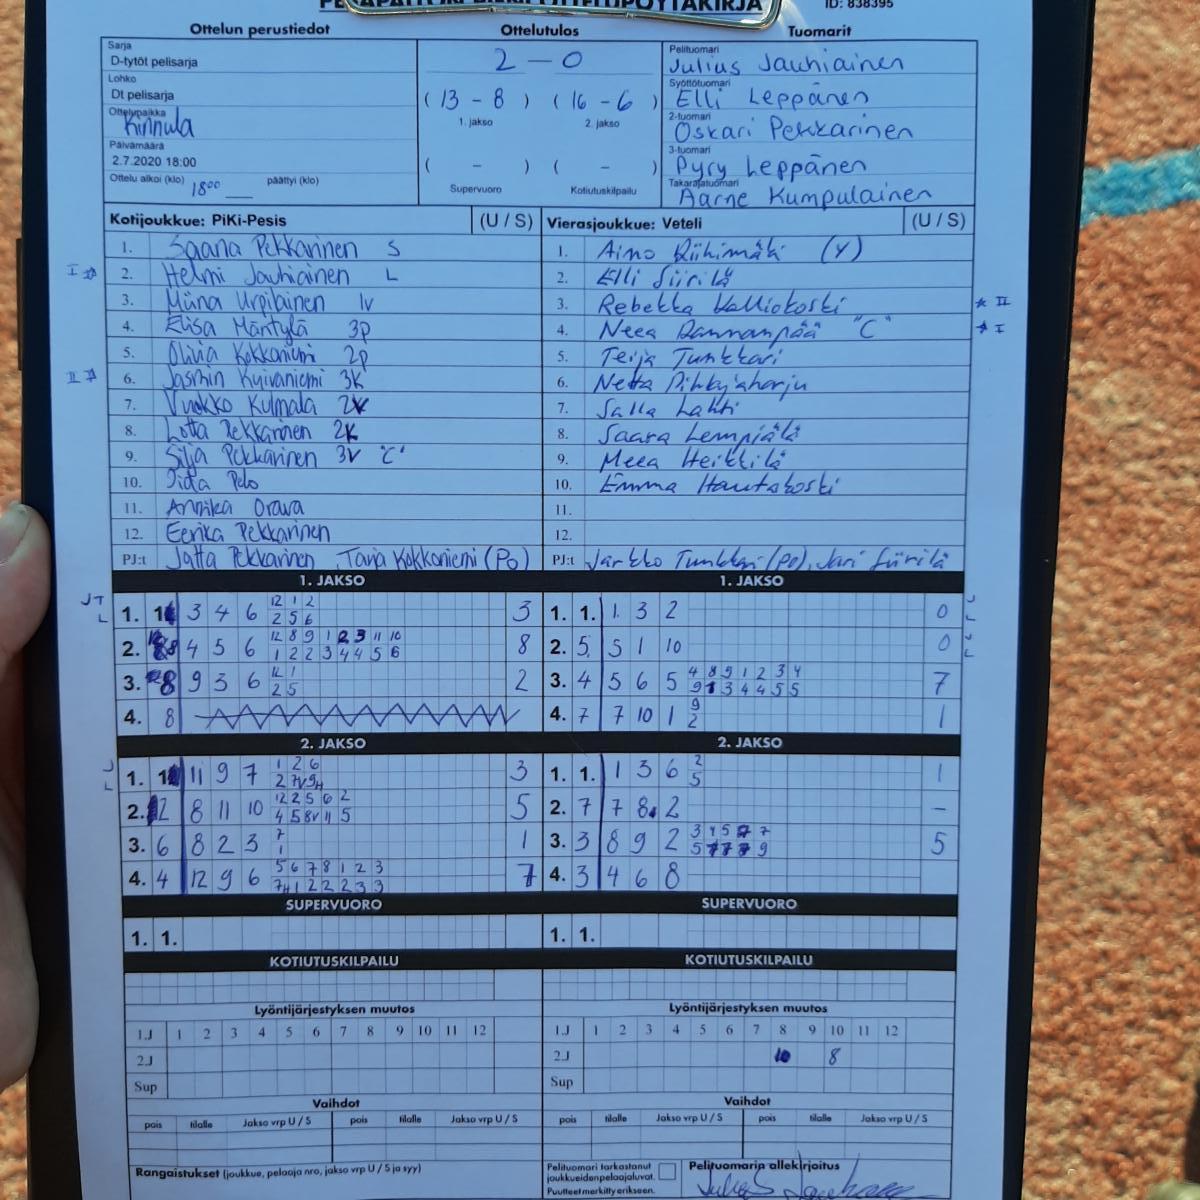 ID: 838395
Ottelun perustiedot Ottelutulos Tuomarit
Sarja
D-tytöt pelisarja
Lohko
Dt pelisarja
Ottelupaikka
Kinnula
Päivämäärä
2.7.2020 18:00
Ottelu alkoi (klo) 18⁰⁰ päättyi (klo)
2 - 0
( 13 - 8 ) ( 16 - 6 )
1. jakso 2. jakso
( - ) ( - )
Supervuoro Kotiutuskilpailu
Pelituomari
Julius Jauhiainen
Syöttötuomari
Elli Leppänen
2-tuomari
Oskari Pekkarinen
3-tuomari
Pyry Leppänen
Takarajatuomari
Aarne Kumpulainen
Kotijoukkue: PiKi-Pesis (U / S)
1. Saana Pekkarinen S
2. Helmi Jauhiainen L
3. Miina Urpilainen lv
4. Elisa Mäntylä 3p
5. Olivia Kokkoniemi 2p
6. Jasmin Kyivaniemi 3K
7. Vuokko Kulmala 2v
8. Lotta Pekkarinen 2K
9. Silja Pekkarinen 3v "C"
10. Iida Pelo
11. Annika Orava
12. Eerika Pekkarinen
PJ:t Jatta Pekkarinen, Tarja Kokkoniemi (Po)
Vierasjoukkue: Veteli (U / S)
1. Aino Riihimäki (Y)
2. Elli Siirilä
3. Rebekka Kalliokoski
4. Neea "C"
5. Teija Tunkkari
6. Netta Pihlajaharju
7. Salla Lahti
8. Saara Lempiälä
9. Meea Heikkilä
10. Emma Hautakoski
11.
12.
PJ:t Jarkko Tunkkari (Po), Jari Siirilä
1. JAKSO
1. 3 4 6 12 1 2 3
2 5 6
2. 4 5 6 12 8 9 1 2 3 11 10 8
1 2 2 3 4 4 5 6
3. 8 9 3 6 12 1 2
2 5
4. 8
1. JAKSO
1. 1. 1 3 2 0
2. 5 5 1 10 0
3. 4 5 6 5 4 8 9 1 2 3 4 7
9 1 3 4 4 5 5
4. 7 7 10 1 9 1
2
2. JAKSO
1. 11 9 7 1 2 6 3
2. 12 8 11 10 12 2 5 6 2 5
3. 6 8 2 3 7 1
1
4. 4 12 9 6 5 6 7 8 1 2 3 7
2. JAKSO
1. 1. 1 3 6 2 1
5
2. 7 7 8 2 -
3. 3 8 9 2 5
4. 3 4 6 8
SUPERVUORO SUPERVUORO
1. 1. 1. 1.
KOTIUTUSKILPAILU KOTIUTUSKILPAILU
Lyöntijärjestyksen muutos Lyöntijärjestyksen muutos
1.J 1 2 3 4 5 6 7 8 9 10 11 12 1.J 1 2 3 4 5 6 7 8 9 10 11 12
2.J 2.J 10 8
Sup Sup
Vaihdot Vaihdot
pois tilalle Jakso vrp U / S pois tilalle Jakso vrp U / S pois tilalle Jakso vrp U / S pois tilalle Jakso vrp U / S
Rangaistukset (joukkue, pelaaja nro, jakso vrp U / S ja syy)
Pelituomari tarkastanut
joukkueiden pelaajaluvat.
Puutteet merkitty erikseen.
Pelituomarin allekirjoitus